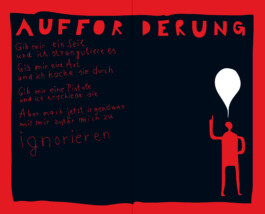 AUFFORDERUNG
Gib mir ein Seil
und ich stranguliere es
Gib mir eine Axt
und ich hacke sie durch
Gib mir eine Pistole
und ich erschieße sie
Aber mach jetzt irgendwas
mich zu
ignorieren